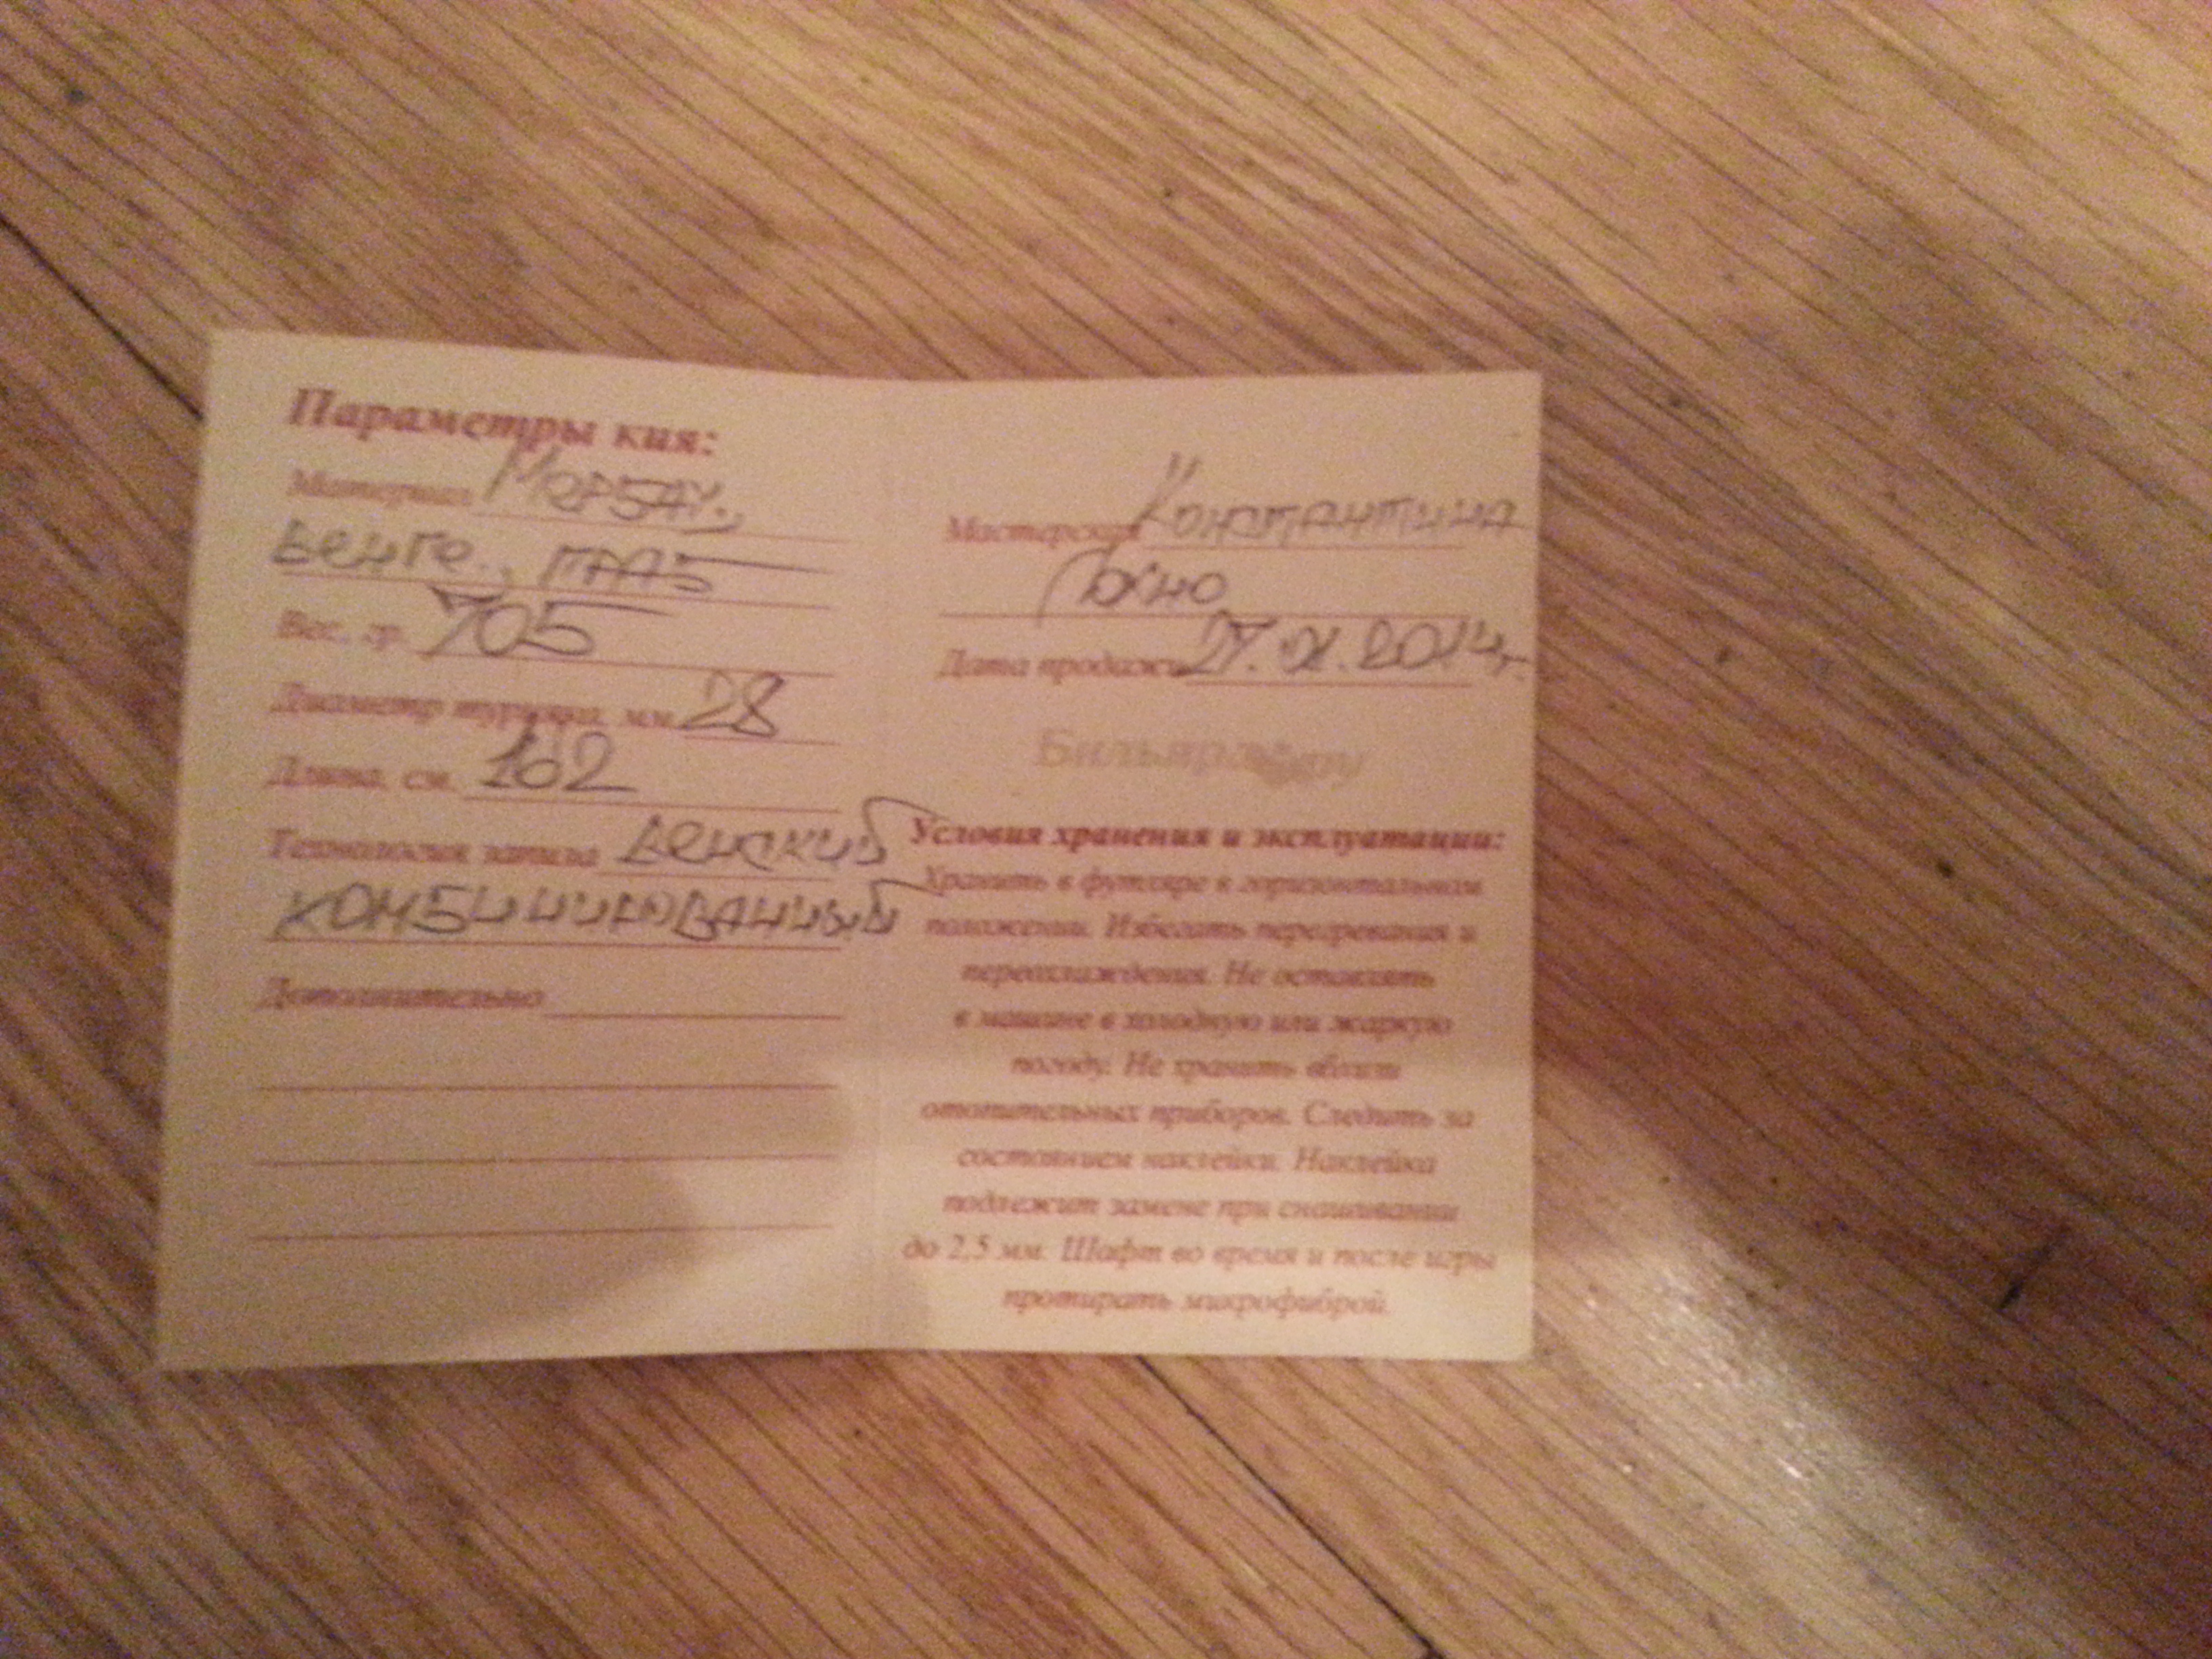 Параметры кия:
Материал Мербау,
Венге, граб
Вес, гр. 705
Диаметр турняка, мм. 28
Длина, см. 162
Технология запила Венский
комбинированный
Дополнительно
Мастерская "Константина
Дата продажи 2014г.
Условия хранения и эксплуатации:
Хранить в футляре в горизонтальном
положении. Избегать перегревания и
переохлаждения. Не оставлять
в машине в холодную или жаркую
погоду. Не хранить вблизи
отопительных приборов. Следить за
состоянием наклейки. Наклейка
подлежит замене при снашивании
до 2,5 мм. Шафт во время и после игры
протирать микрофиброй.